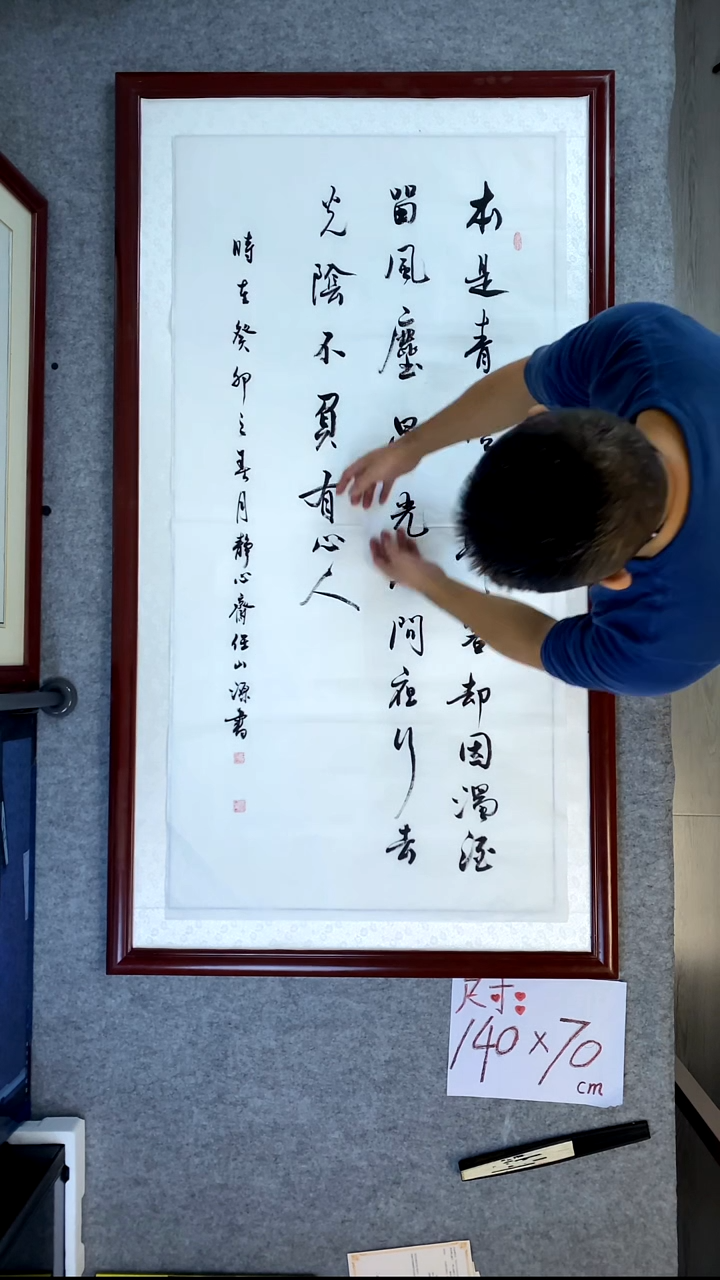 本是青却因濁酒
留風塵光問夜行去
光陰不負有心人
時在癸卯之春月靜心齋任山源書
尺寸:
140×70
cm